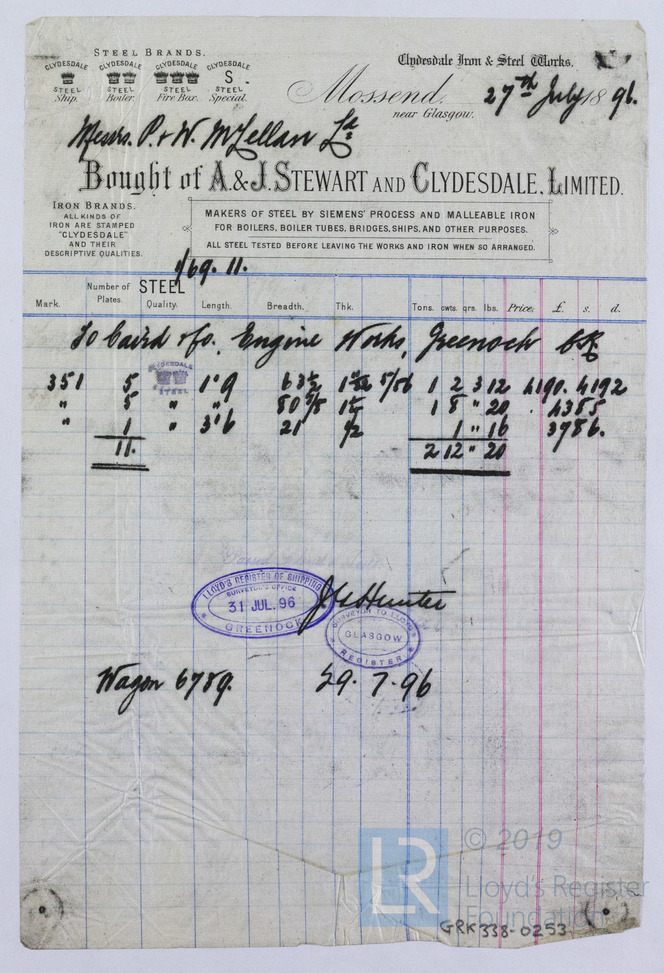 STEEL BRANDS.
CLYDESDALE STEEL Ship.
CLYDESDALE STEEL Boiler.
CLYDESDALE STEEL Fire Box.
CLYDESDALE S. STEEL Special.
Clydesdale Iron & Steel Works.
Mossend,
near Glasgow.
27th July 1896.
Messrs. P. & W. McLellan Ld
Bought of A. & J. STEWART AND CLYDESDALE, LIMITED.
IRON BRANDS.
ALL KINDS OF
IRON ARE STAMPED
"CLYDESDALE"
AND THEIR
DESCRIPTIVE QUALITIES.
MAKERS OF STEEL BY SIEMENS' PROCESS AND MALLEABLE IRON
FOR BOILERS, BOILER TUBES, BRIDGES, SHIPS, AND OTHER PURPOSES.
ALL STEEL TESTED BEFORE LEAVING THE WORKS AND IRON WHEN SO ARRANGED.
1/69.11.
Mark. Number of Plates. STEEL Quality. Length. Breadth. Thk. Tons. cwts. qrs. lbs. Price. £. s. d.
To Caird & Co. Engine Works, Greenock
CLYDESDALE STEEL
351 5 1'9 1 2 3 12 4190. 4192
" 5 " " 1 8 " 20 4385
" 1 " 3'6 21 1/2 1 " 16 3786.
11. 2 12 " 20
LLOYD'S REGISTER OF SHIPPING
SURVEYOR'S OFFICE
31 JUL. 96
GREENOCK
J. G. Hunter
SURVEYOR TO LLOYD'S
GLASGOW
REGISTER
Wagon 6789. 29.7.96
© 2019
LR
Lloyd's Register
Foundation
GRK338-0253